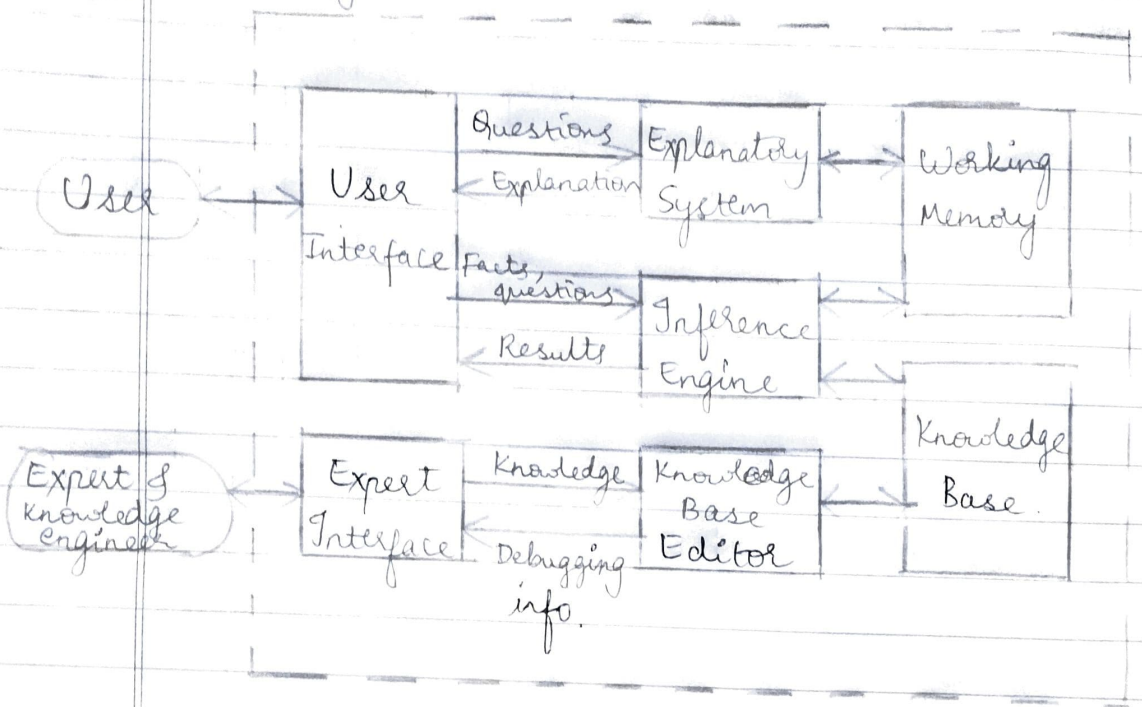 User
User
Interface
Questions
Explanation
Explanatory
System
Working
Memory
Facts,
questions
Results
Inference
Engine
Expert &
Knowledge
engineer
Expert
Interface
Knowledge
Debugging
info.
Knowledge
Base
Editor
Knowledge
Base.